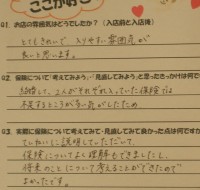 ここがお
Q1. お店の雰囲気はどうでしたか？（入店前と入店後）
とてもきれいで 入りやすい雰囲気が
良いと思います。
Q2. 保険について“考えてみよう”“見直してみよう”と思ったきっかけは何です
結婚して、2人がそれぞれ入っていた保険では
不足するところが多い気がしたため
Q3. 実際に保険について考えてみて・見直してみて良かった点は何ですか
ていねいに説明していただいて、
保険についてよく理解もできましたし、
将来のことについて考えることができたので
よかったです。